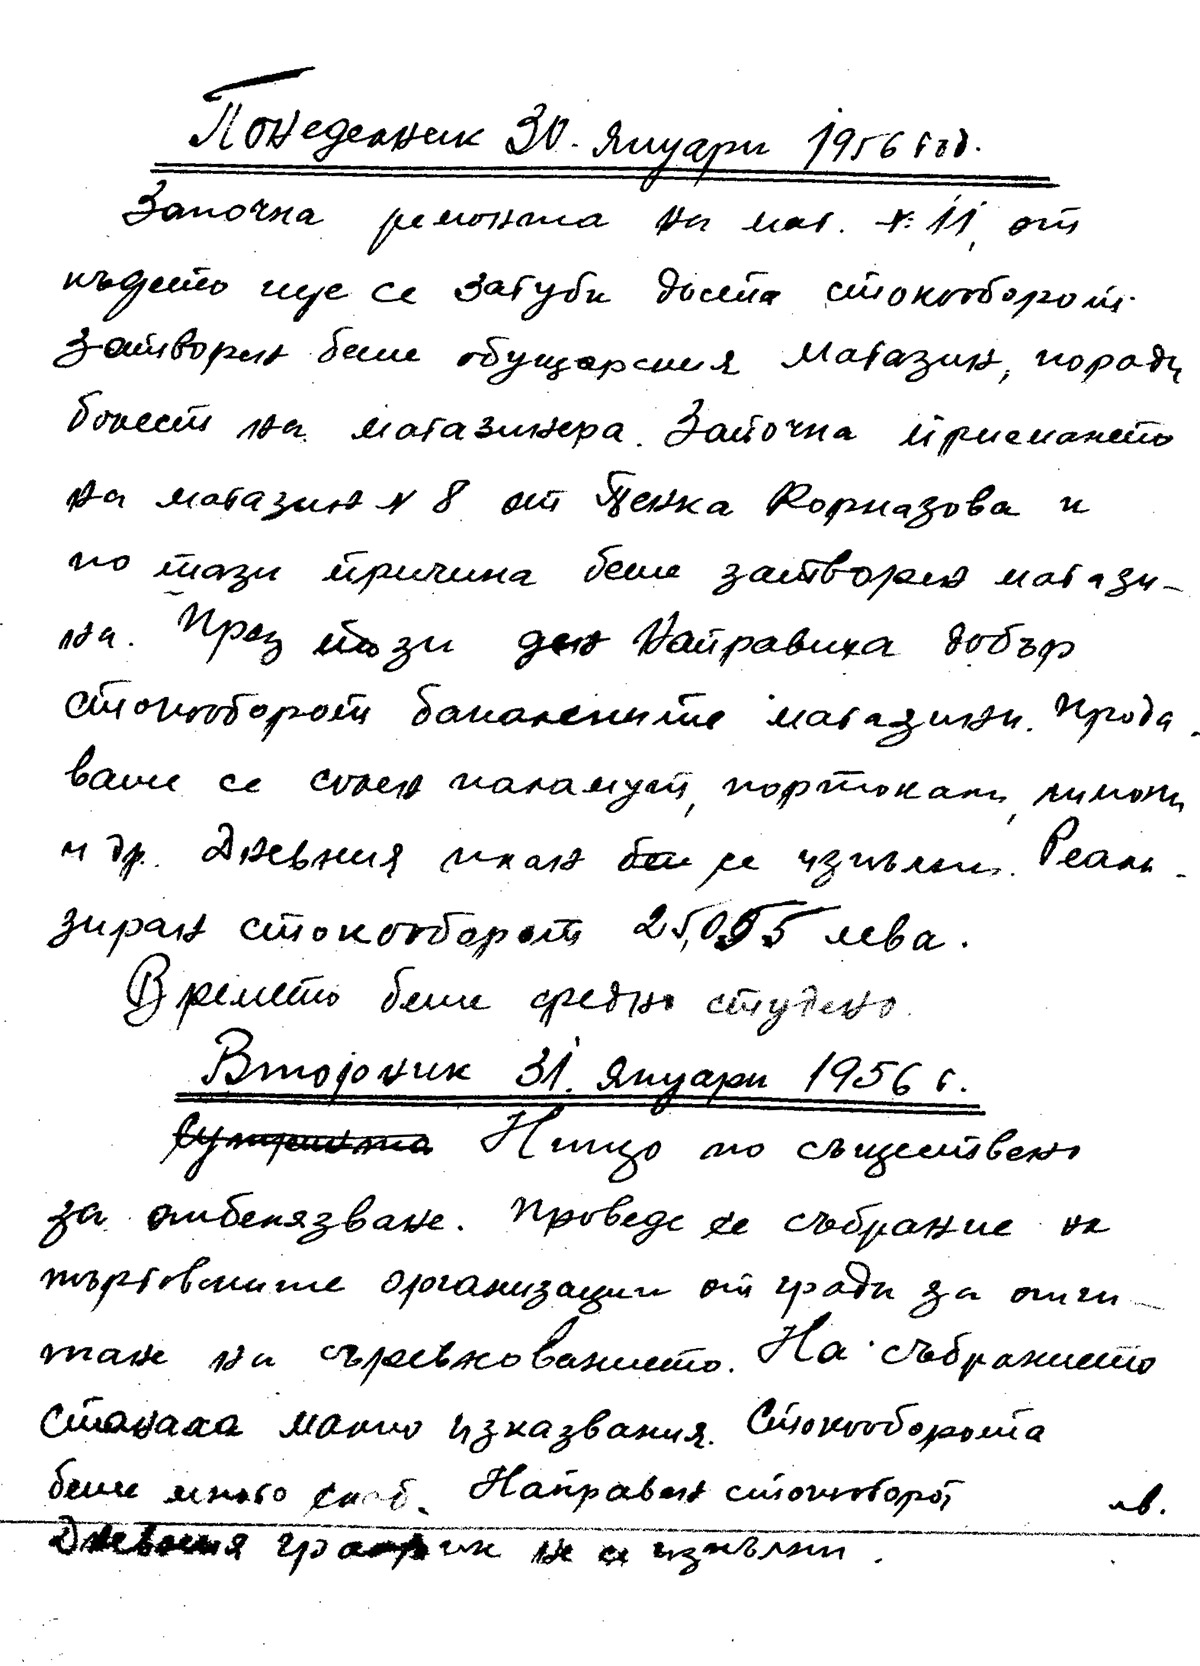 Понеделник 30. януари 1956 год.
Започна ремонта на маг. № 11, от
където ще се загуби доста стокооборот.
Затворен беше обущарския магазин, поради
болест на магазинера. Започна приемането
на магазин № 8 от Ценка Кормазова и
по тази причина беше затворен магази-
на. През този ден направиха добър
стокооборот бакалските магазини. Прода-
ваше се солен паламут, портокали, лимони
и др. Дневния план бе се изпълни. Реали-
зиран стокооборот 25,055 лева.
Времето беше средно студено.
Вторник 31. януари 1956 г.
Сутринта Нищо по съществено
за отбелязване. Проведе се събрание на
търговските организации от града за отчи-
тане на съревнованието. На събранието
станаха малко изказвания. Стокооборота
беше много слаб. Направен стокооборот лв.
Дневния график не се изпълни.